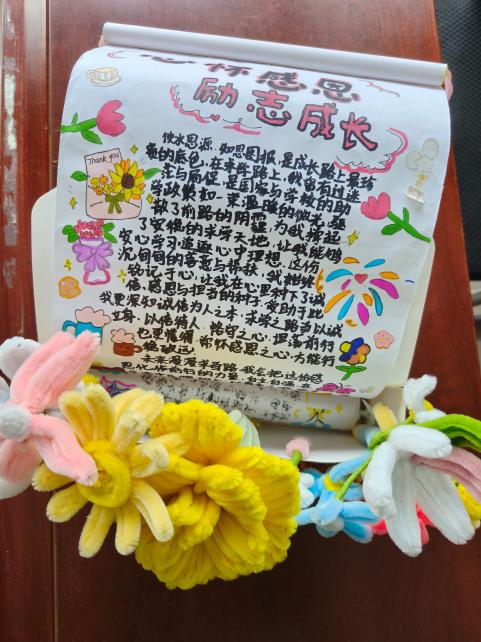 心怀感恩
励志成长
Thank you
饮水思源,知恩图报,是成长路上最珍
贵的底色。在求学路上,我曾有过迷
茫与局促,是国家与学校的助
学政策如一束温暖的微光,驱
散了前路的阴霾,为我撑起
了安稳的求学天地,让我能够
安心学习追逐心中理想,这份
沉甸甸的善意与扶持,我始终
铭记于心,让我在心里种下了诚
信、感恩与担当的种子,受助于此
我更深知诚信为人之本,求学之路当以诚
立身,以信待人,恪守之心,坦荡前行
也更懂得常怀感恩之心,方能行
稳致远
未来漫漫求学路,我会把这份感
恩化作前行的力量,自立自强,在